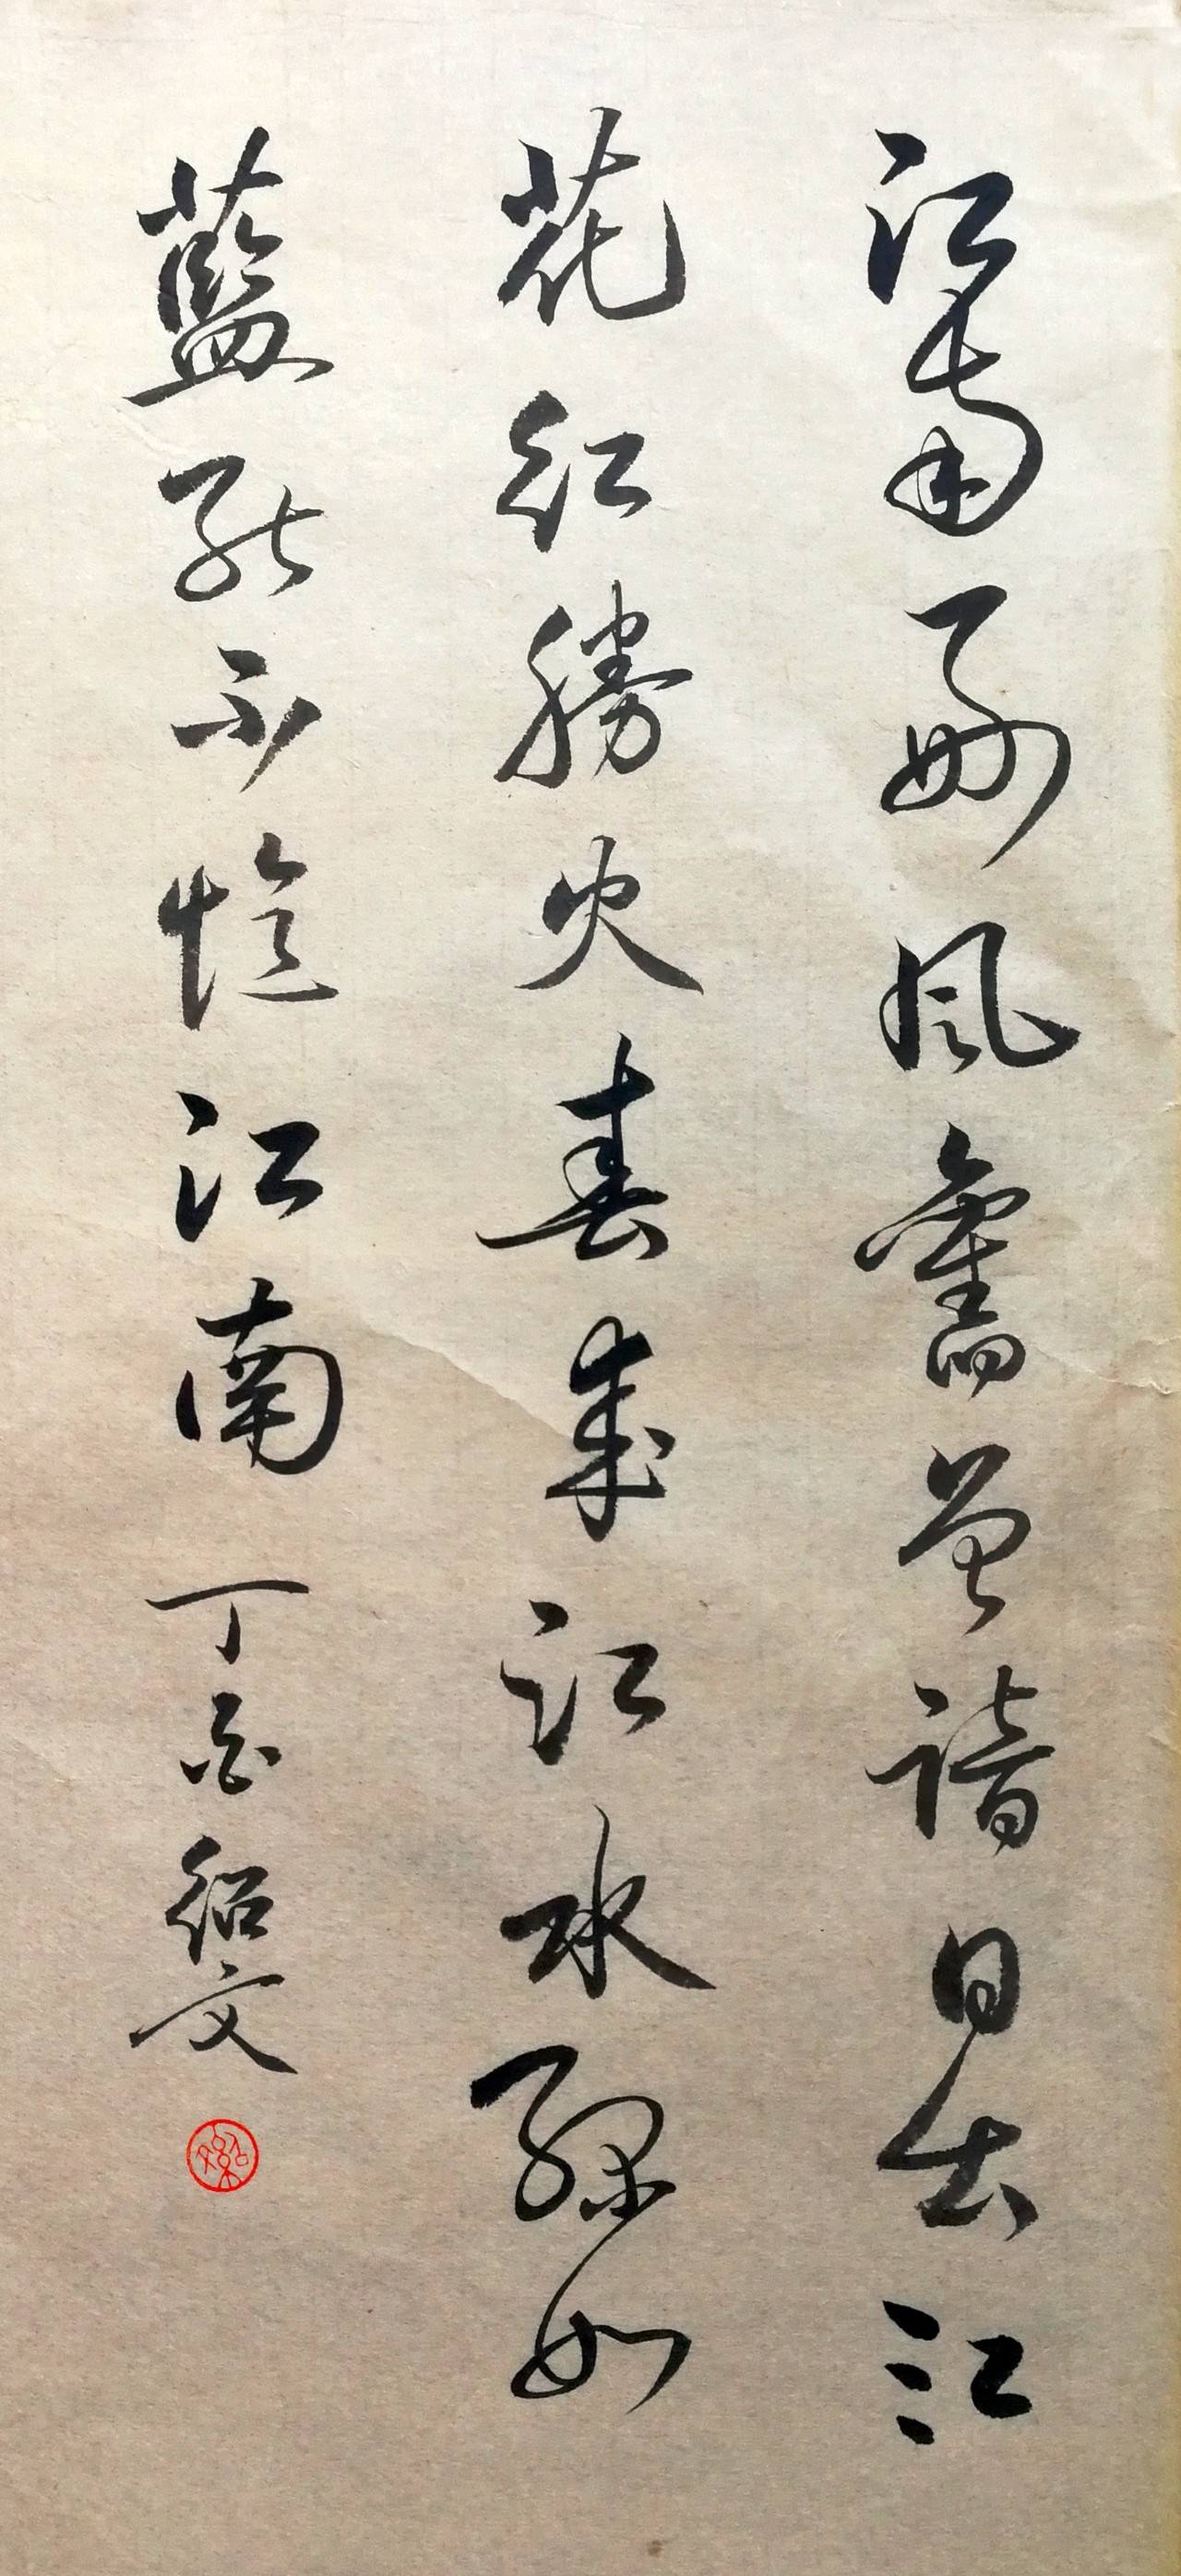 江南好風舊曾諳日出江
花紅勝火春來江水綠如
藍能不憶江南丁酉紹文